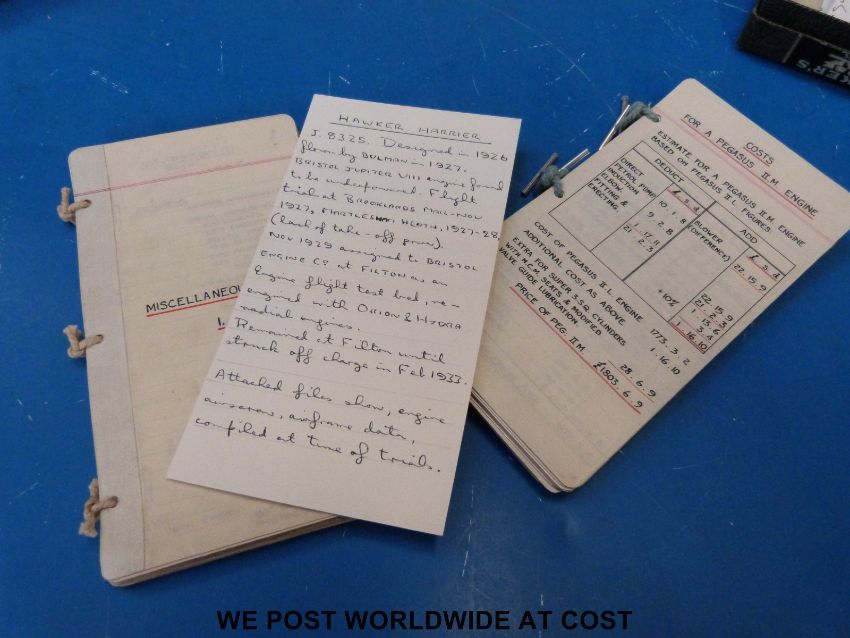 MISCELLANEO
1.
HAWKER HARRIER
J. 8325. Designed in 1926
flown by BULMAN in 1927.
BRISTOL JUPITER VIII engine found
to be underpowered. Flight
trial at BROOKLANDS MAR-NOV
1927, MARTLESHAM HEATH, 1927-28,
(lack of take-off power).
NOV 1929 assigned to BRISTOL
ENGINE Co at FILTON as an
Engine flight test bed, re-
engined with ORION & HYDRA
radial engines.
Remained at Filton until
struck off charge in Feb 1933.
Attached files show, engine
airscrew, airframe data,
compiled at time of trials.
COSTS
FOR A PEGASUS II.M. ENGINE
ESTIMATE FOR A PEGASUS II.M. ENGINE
BASED ON PEGASUS II.L. FIGURES
DEDUCT
ADD
£ . s . d
£ . s . d
DIRECT
PETROL PUMP
10 . 1 . 8
INDUCTION
ELBOW
9 . 2 . 8
FITTING &
ERECTING
1 . 17 . 11
21 . 2 . 3
BLOWER
(DIFFERENCE)
22 . 15 . 9
22 . 15 . 9
21 . 2 . 3
1 . 13 . 6
+10%
3 . 4
1 . 16 . 10
COST OF PEGASUS II.L ENGINE
1773 . 3 . 2
ADDITIONAL COST AS ABOVE
1 . 16 . 10
EXTRA FOR SUPER S.SQ. CYLINDERS
WITH N.C.M. SEATS & MODIFIED
VALVE GUIDE LUBRICATION
28 . 6 . 9
PRICE OF PEG. II M.
£1803 . 6 . 9
KER'S
WE POST WORLDWIDE AT COST